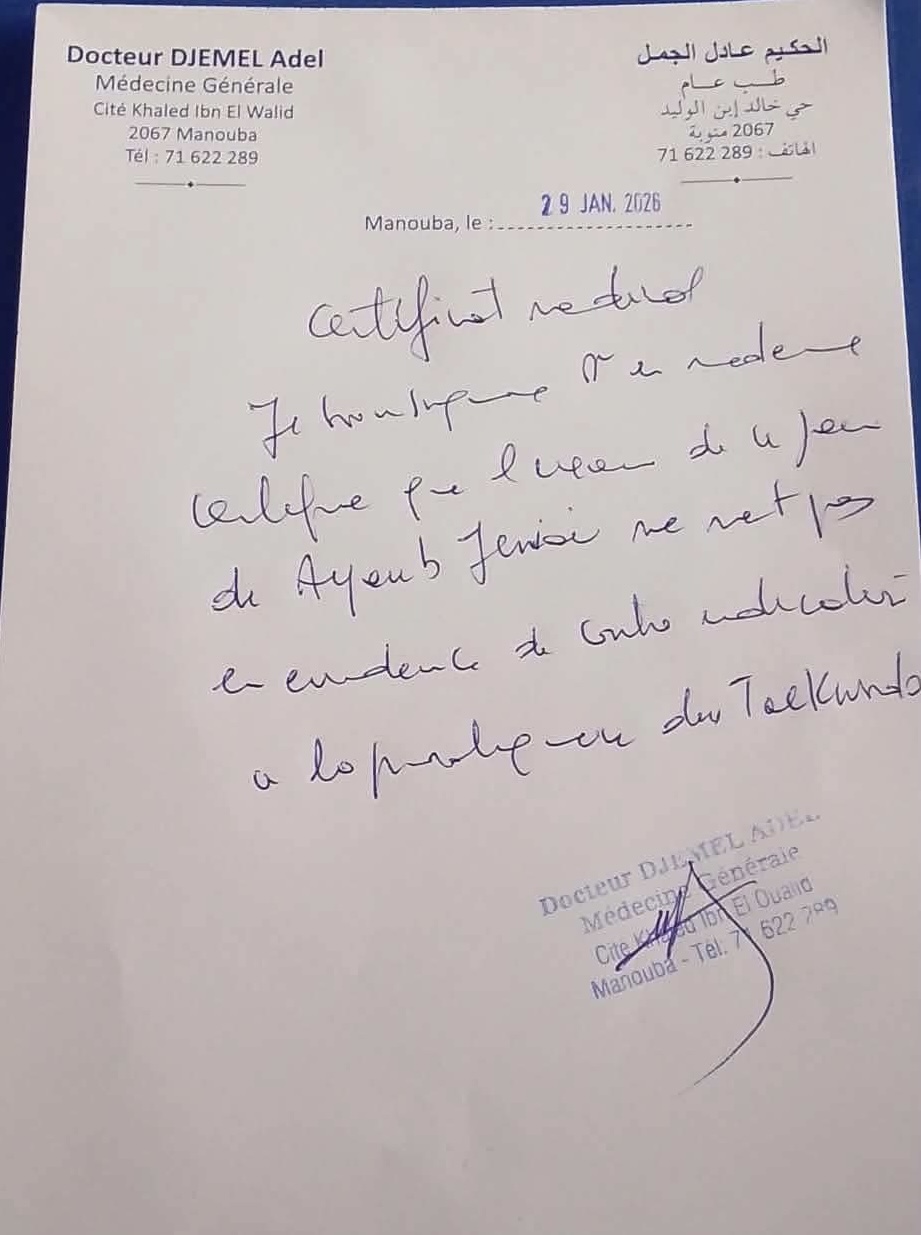 Docteur DJEMEL Adel
Médecine Générale
Cité Khaled Ibn El Walid
2067 Manouba
Tél : 71 622 289
الحكيم عادل الجمل
طب عام
حي خالد إبن الوليد
2067 منوبة
الهاتف : 289 622 71
Manouba, le : 29 JAN. 2026
Certificat medical
Je soussigne Dr en medecine
certifie que l'examen de ce jour
de Ayoub ne met pas
en evidence de contre indication
a la pratique du TaeKwndo
Docteur DJEMEL ADEL
Médecine Générale
Cité Khaled Ibn El Oualid
Manouba - Tél. 71 622 289